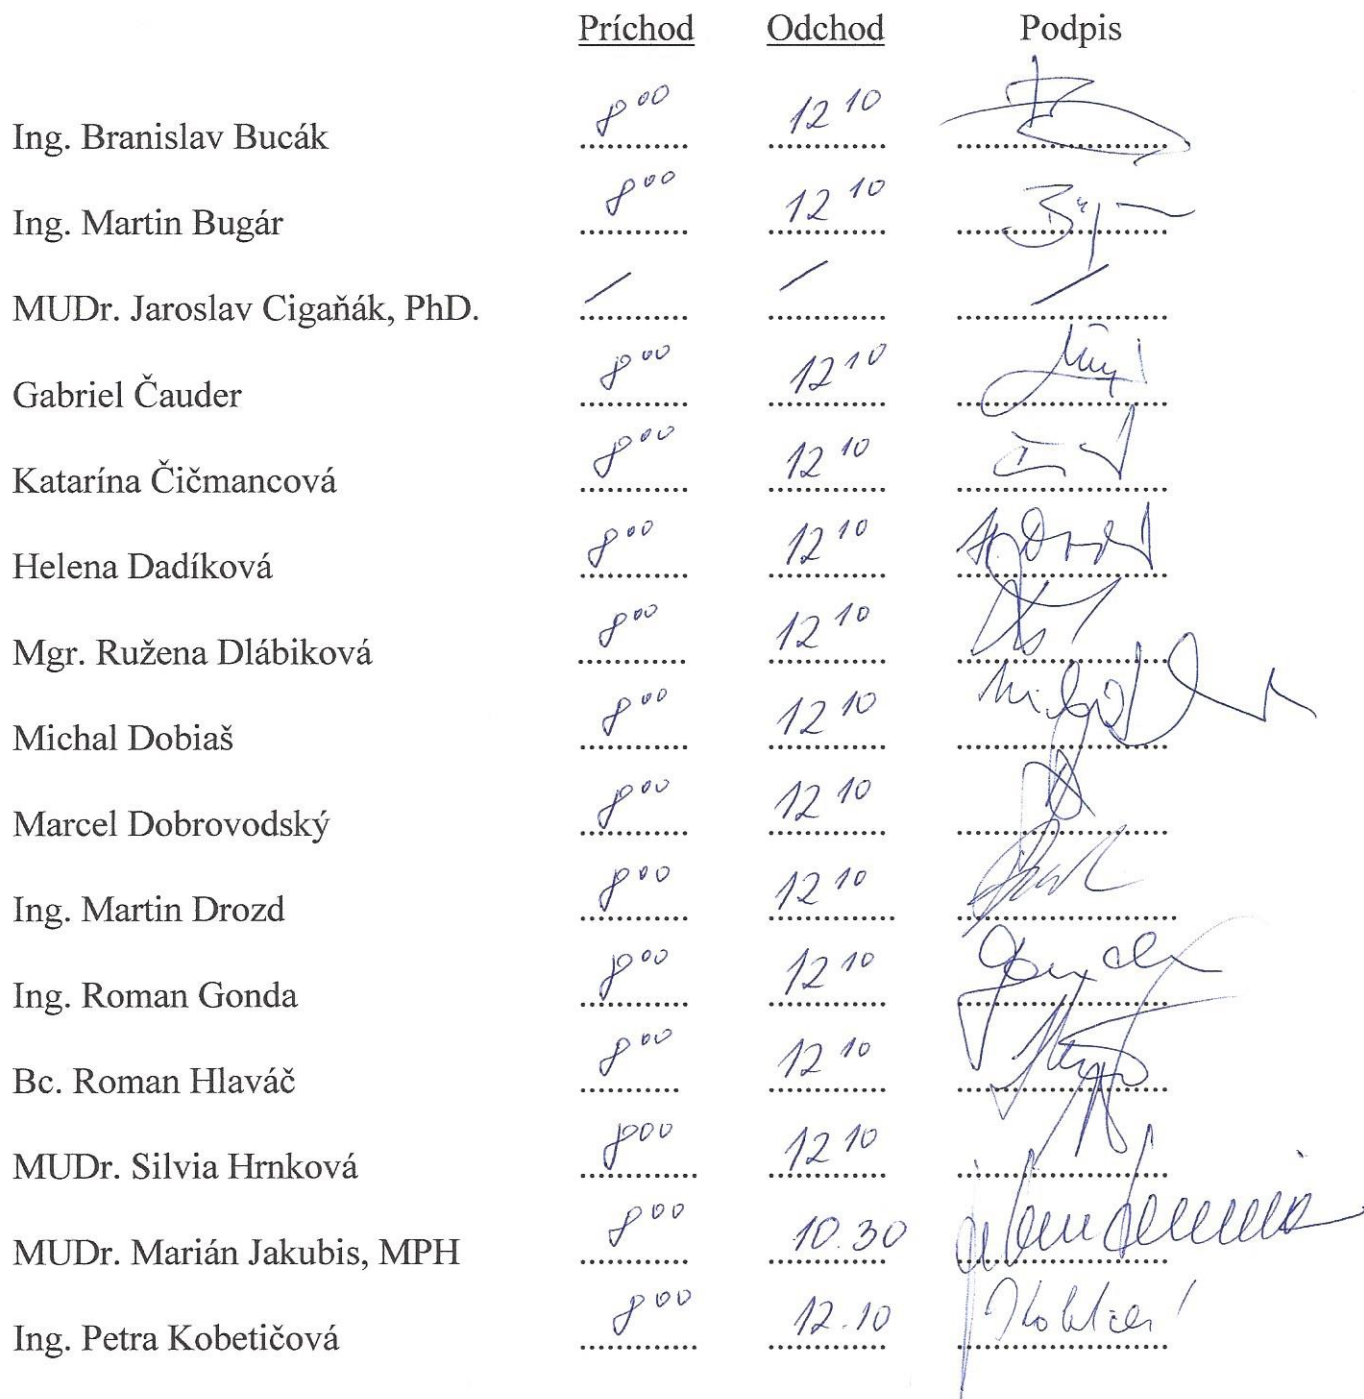 Príchod Odchod Podpis
Ing. Branislav Bucák 8⁰⁰ 12¹⁰
Ing. Martin Bugár 8⁰⁰ 12¹⁰
MUDr. Jaroslav Cigaňák, PhD. / / /
Gabriel Čauder 8⁰⁰ 12¹⁰
Katarína Čičmancová 8⁰⁰ 12¹⁰
Helena Dadíková 8⁰⁰ 12¹⁰
Mgr. Ružena Dlábiková 8⁰⁰ 12¹⁰
Michal Dobiaš 8⁰⁰ 12¹⁰
Marcel Dobrovodský 8⁰⁰ 12¹⁰
Ing. Martin Drozd 8⁰⁰ 12¹⁰
Ing. Roman Gonda 8⁰⁰ 12¹⁰ Gonda
Bc. Roman Hlaváč 8⁰⁰ 12¹⁰
MUDr. Silvia Hrnková 8⁰⁰ 12¹⁰
MUDr. Marián Jakubis, MPH 8⁰⁰ 10.30
Ing. Petra Kobetičová 8⁰⁰ 12.10